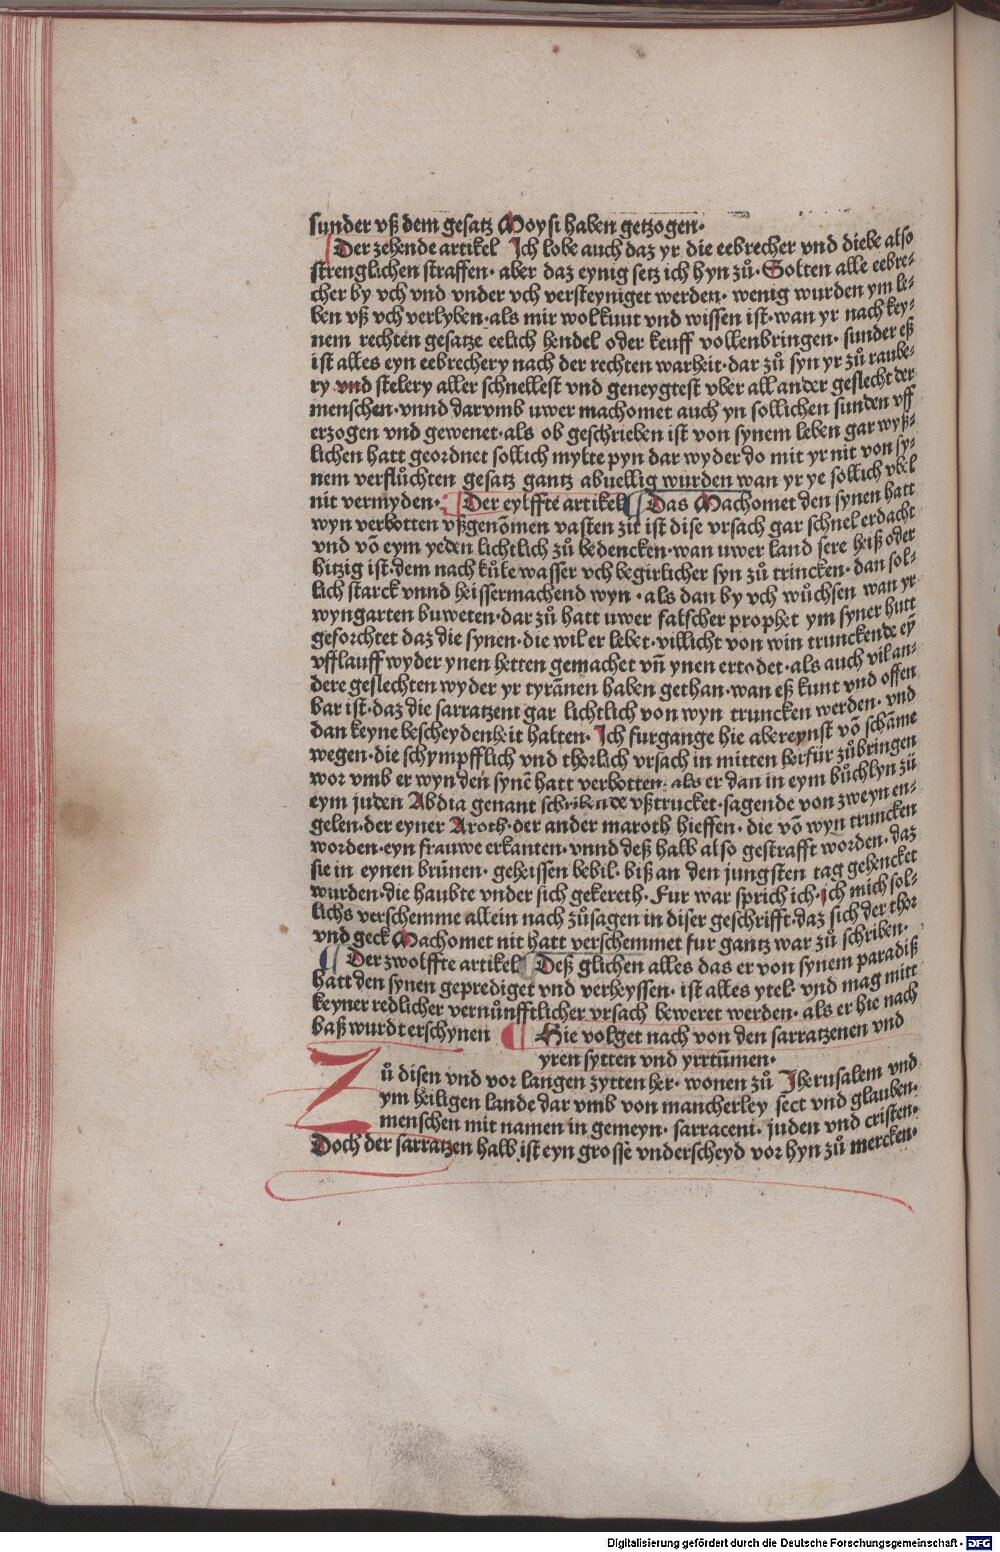 sunder vß dem gesatz Moysi haben getzogen·
Der zehende artikel Ich lobe auch daz yr die eebrecher vnd diebe also
strenglichen straffen· aber daz eynig setz ich hyn zů· Solten alle eebre⸗
cher by vch vnd vnder vch versteyniget werden· wenig wurden ym le⸗
ben vß vch verlyben·als mir wol kunt vnd wissen ist·wan yr nach key⸗
nem rechten gesatze eelich hendel oder keuff vollenbringen· sunder eß
ist alles eyn eebrechery nach der rechten warheit·dar zů syn yr zů raube⸗
ry vnd stelery aller schnellest vnd geneygtest vber all ander geslecht der
menschen·vnnd darvmb uwer machomet auch yn sollichen sunden vff
erzogen vnd gewenet·als ob geschrieben ist von synem leben gar wyß⸗
lichen hatt geordnet sollich mylte pyn dar wyder do mit yr nit von sy⸗
nem verflůchten gesatz gantz abuellig wurden wan yr ye sollich vbel
nit vermyden· Der eylffte artikel Das Machomet den synen hatt
wyn verbotten vßgenōmen vasten zit ist dise vrsach gar schnel erdacht
vnd vō eym yeden lichtlich zů bedencken·wan uwer land sere heiß oder
hitzig ist·dem nach kůle wasser vch begirlicher syn zů trincken· dan sol⸗
lich starck vnnd heissermachend wyn · als dan by vch wůchsen wan yr
wyngarten buweten·dar zů hatt uwer falscher prophet ym syner hutt
geforchtet daz die synen·die wil er lebet·villicht von win trunckende eȳ
vfflauff wyder ynen hetten gemachet vn̄ ynen ertodet·als auch vil an⸗
dere geslechten wyder yr tyrānen haben gethan·wan eß kunt vnd offen
bar ist·daz die sarratzent gar lichtlich von wyn truncken werden· vnd
dan keyne bescheydenheit halten· Ich furgange hie abereynst vō schāme
wegen·die schympfflich vnd thorlich vrsach in mitten herfür zůbringen
wor vmb er wyn den synē hatt verbotten· als er dan in eym bůchlyn zü
eym juden Abdia genant schribende vßtrucket·sagende von zweyn en⸗
gelen·der eyner Aroth·der ander maroth hieffen· die vō wyn truncken
worden·eyn frauwe erkanten·vnnd deß halb also gestrafft worden· daz
sie in eynen brūnen· geheissen bebil· biß an den jungsten tag gehencket
wurden·die haubte vnder sich gekereth·Fur war sprich ich·ich mich sol⸗
lichs verschemme allein nach zůsagen in diser geschrifft·daz sich der thor
vnd geck Machomet nit hatt verschemmet fur gantz war zů schriben·
Der zwolffte artikel Deß glichen alles das er von synem paradiß
hatt den synen geprediget vnd verheyssen· ist alles ytel· vnd mag mitt
keyner redlicher vernůnfftlicher vrsach beweret werden· als er hie nach
baß wurdt erschynen Hie volget nach von den sarratzenen vnd
yren sytten vnd yrrtūmen·
Zů disen vnd vor langen zytten her· wonen zů Jherusalem vnd
ym heiligen lande dar vmb von mancherley sect vnd glauben·
menschen mit namen in gemeyn· sarraceni· juden vnd cristen·
Doch der sarratzen halb ist eyn grosse vnderscheyd vor hyn zů mercken·
Digitalisierung gefördert durch die Deutsche Forschungsgemeinschaft - DFG